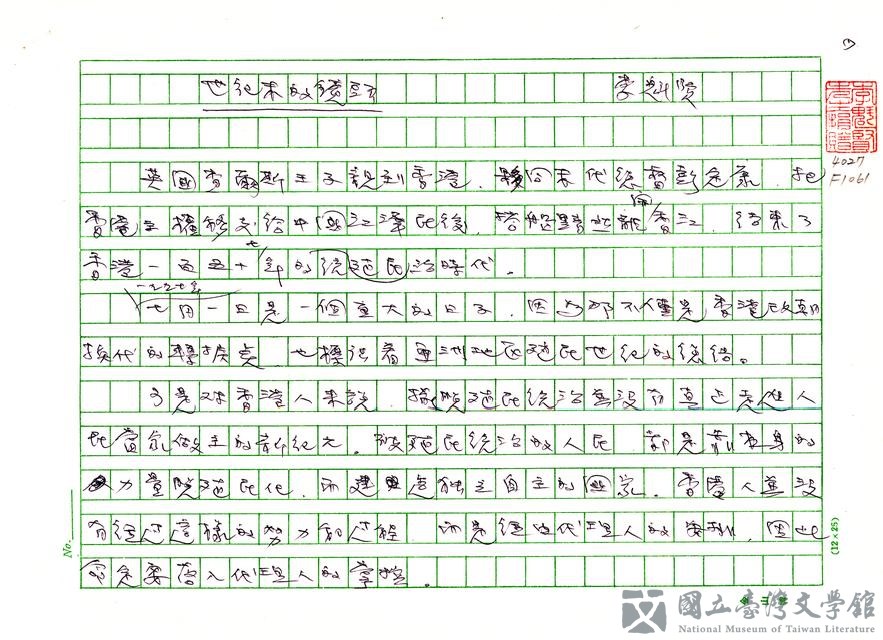 世紀末的鏡子 李魁賢
4027
F1061
英國查爾斯王子親到香港,揍同末代總督彭定康,把
香港主權移交給中國江澤民後,搭船黯然離開香江,結束了
香港一百五十七年的殖民統治時代。
一九九七年七月一日是一個重大的日子,因為那不僅是香港改朝
換代的轉捩點,也標誌著亞洲地區殖民世紀的總結。
可是對香港人來說,擺脫殖民統治並沒有真正走進人
民當家做主的新紀元。被殖民統治的人民,都是靠本身的
力量脫殖民化,而建立起獨立自主的國家。香港人並沒
有經過這樣的努力和過程,而是經由代理人的安排,因此
命定要落入代理人的掌控。
No.
(12×25)
國立臺灣文學館
National Museum of Taiwan Literature